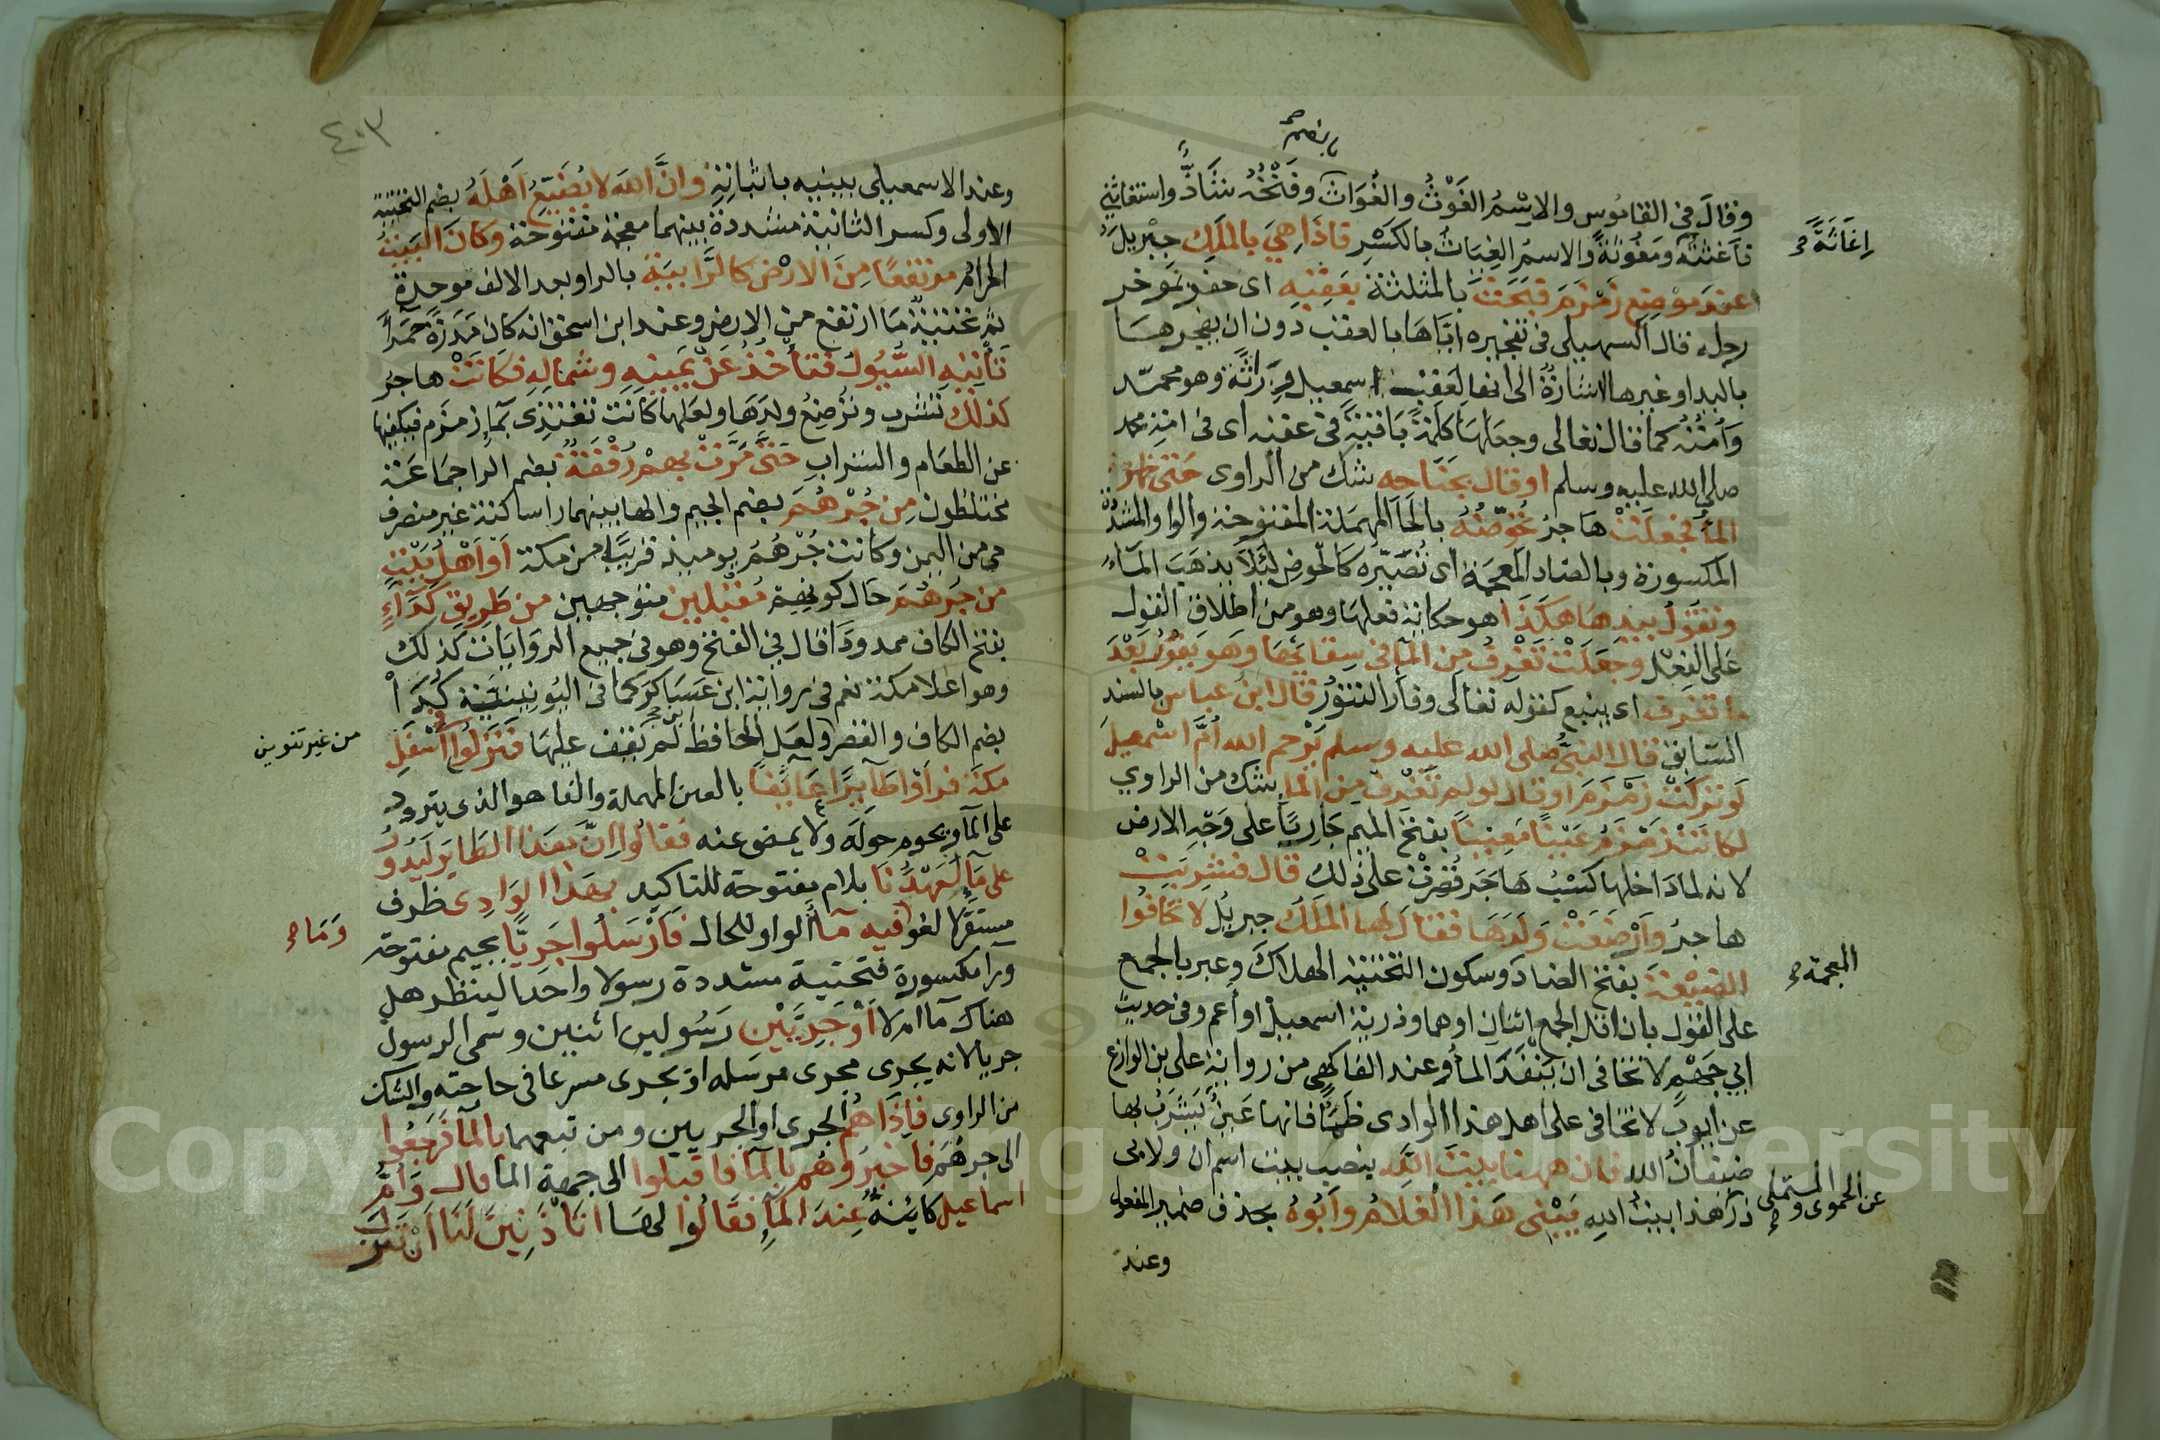 بالضم
وقال في القاموس والاسم الغَوْثُ والغُوَاث وفَتْحُهُ شَاذٌّ واستغاثني
فأغثته ومَغُوثَةً والاسمُ الغِيَاثُ بالكَسْرِ فَاذَا هِيَ بالمَلَكِ جِبْرِيلَ
اِغَاثَةً صح
عندَ موْضِعِ زَمْزَمَ فبَحَثَ بالمثلثة بعَقِبْهِ اى حفر بمؤخر
رجله قال السهيلى فى تفجيره ايّاهَا بالعقب دون ان يفجرهَا
باليد او غيرها اشارَةٌ الى انها لعَقِب اسمعيل وِرَاثَةً وهو محمّد
وَاُمَّتُهُ كما قال تعالى وجعلهَا كلمَةً بَاقيَةً فى عقبه اى فى امة محمد
صلى الله عليه وسلم او قال بجَنَاحِه شك من الراوى حَتى ظهرَ
الماءُ فجعَلَتْ هَاجرُ تُحَوّضُهُ بالحَا المهمَلة المفتوحة والواو المشدّدة
المكسورة وبالضاد المعجمَة اى تُصَيّره كالحَوض لئَلاّ يذهَبَ المَاءُ
وتقولُ بيَدِهَا هكَذَا هو حكاية فعلهَا وهو من اطلاق القول
عَلى الفِعْل وجَعَلَتْ تَغْرِفُ مِن المَا فى سِقائِهَا وَهو يَفُوْرُ بَعْدَ
ما تغرف اى ينبع كقوله تعالى وفارَ التنّورُ قال ابن عباس بالسند
السّابق قال النبىُّ صلى الله عليه وسلم يَرْحم الله اُمَّ اسْمعيل
لَو تَرَكَتْ زَمْزَمَ او قال لو لم تَغْرِفْ مِن المَا شك من الراوي
لكانَتْ زمْزَمُ عَيْنًا مَعِيْنًا بفَتح الميم جَارِيًا على وَجْهِ الارض
لانه لما دَاخلها كَسْبُ هَاجَر قُصِرَتْ على ذلك قال فشَرِبَتْ
هاجرُ وَاَرْضَعَتْ وَلَدَهَا فقَالَ لَهَا المَلَكُ جبريل لا تخَافُوا
الضيْعَةَ بفتح الضاد وسكون التحتية الهلاك وعبر بالجمع
المعجمة صح
على القول بان اقل الجمع اثنان او هما وذرية اسمعيل او اعم وفى حديث
ابي جَهْمٍ لا تخافى ان يَنْفَدَ الماُ وعند الفاكهى من رواية على بن الوازع
عن ايوب لا تخافى على اهل هذا الوادى ظَمَأً فانها عَينٌ يَشرَبُ بها
ضيفَانُ الله فان ههنا بيتَ اللهِ بنصب بيت اسم ان ولابى
ذر هَذا بيتُ اللهِ يَبْنى هَذا الغلامُ وَابُوهُ بحذف ضمير المفعول
عن الحموى والمستملى صح
وعند
٤٠٣
وعند الاسمعيلى يبنيه باثباته وانَّ اللهَ لا يُضَيّعُ اَهْلَهُ بضم التحتية
الاولى وكسر الثانية مشددة بينهما معجمة مفتوحة وكان البَيتُ
الحرام مرتفعًا مِنَ الارْض كالرَّابيَة بالراو بعد الالف موحدة
ثم تحتيةٌ مَا ارتفع من الارض وعند ابن اسحق انه كان مَدَرَةً حَمْراً
تَأتيْهِ السُّيُولُ فتأخُذُ عَنْ يَمينِهِ وشمالِهِ فكانَتْ هَاجرُ
كذلكَ تشرب وتُرضعُ ولدَهَا ولعَلها كانت تغتذى بمَاءِ زمزم فيكفيها
عن الطعَام والشراب حَتىَّ مَرَّتْ بهمْ رُفْقَةٌ بضم الرا جماعَة
مختلطون مِن جُرْهُمَ بضم الجيم والها بينهما را ساكنة غير منصرف
حى من اليمن وكانت جُرْهُمُ يوميذ قريبًا من مكة اَوْ اَهْلُ بَيْتٍ
من جُرهُمَ حَال كونهِم مُقْبِلين متوجهين من طَرِيقِ كَدَآءٍ
بفتح الكاف ممدودَا قال في الفتح وهو فى جميع الروَايَات كذلك
وهو اعلا مكة نعم فى رواية ابن عَسَاكِر كما فى اليونينية كُدَا
بضم الكاف والقصر ولعَل الحافظ ابن حجر لم يَقِف عليهَا فَنَزَلُوا اَسْفَلِ
من غير تنوين
مكةَ فرأوْا طَآيِرًا عَائِفًا بالعين المهملة والفا هو الذى يتردد
على المَا ويحوم حَولَهُ ولا يمضى عنه فَقالُوا اِنَّ هَذا الطَايرَ ليَدُورُ
على مَآءٍ لَعَهْدُنَا بلام مفتوحة للتاكيد بهَذا الوَادِى ظرف
مستقر لا لغو فيه مآ الواو للحال فَاَرْسَلُوا جَرِيًّا بجيم مفتوحة
وَمَا صح
ورا مكسورة فتحتية مشددة رسولا واحدا لينظر هل
هناك مآ ام لا اَوْ جَرِيَّيْنِ رَسُولين اثنين وسمى الرسول
جريا لانه يجرى مجرى مرسَله او يجرى مسرعا فى حاجته والشك
من الراوى فاِذَا هُم الجرى او الجريين ومن تبعهما بالمآ فَرَجَعُوا
الى جرهُم فاخبَرُوهُم بالمآ فاقبلوا الى جهة الما قال وَاُمُّ
اسماعيل كائنةٌ عِندَ المَآءِ فقَالوا لهَا اتَاْذَنِيْنَ لَنَا اَنْ نَنْزِلَ